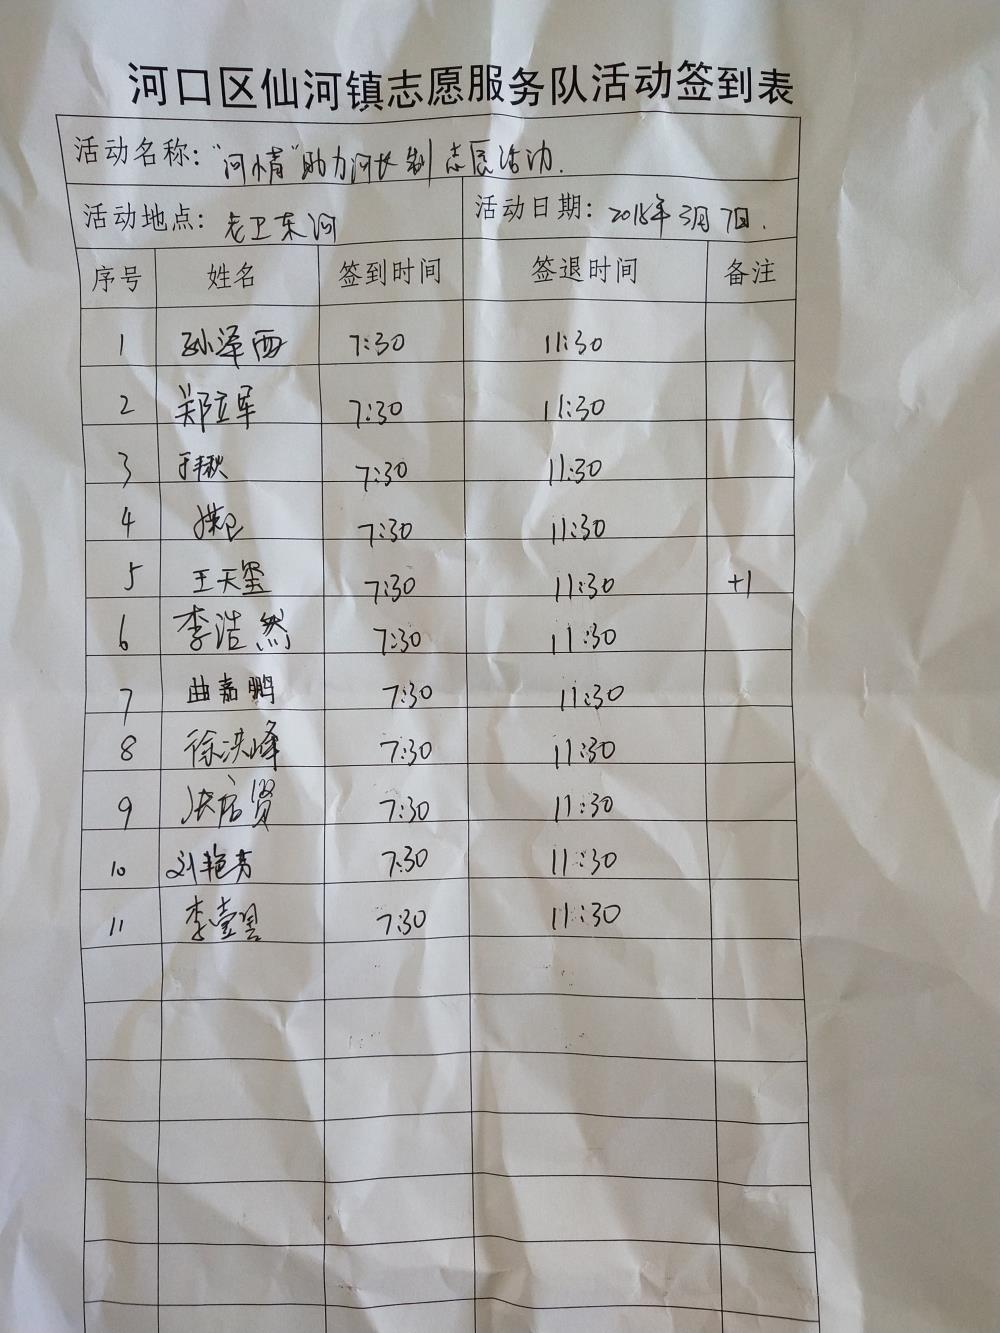 河口区仙河镇志愿服务队活动签到表
活动名称:“河情”助力河长制志愿活动.
活动地点: 老卫东河 活动日期: 2018年3月7日.
序号 姓名 签到时间 签退时间 备注
1 孙泽西 7:30 11:30
2 郑立军 7:30 11:30
3 于秋 7:30 11:30
4 7:30 11:30
5 王天玺 7:30 11:30 +1
6 李浩然 7:30 11:30
7 曲嘉鹏 7:30 11:30
8 徐洪峰 7:30 11:30
9 7:30 11:30
10 刘艳芳 7:30 11:30
11 李壹昙 7:30 11:30